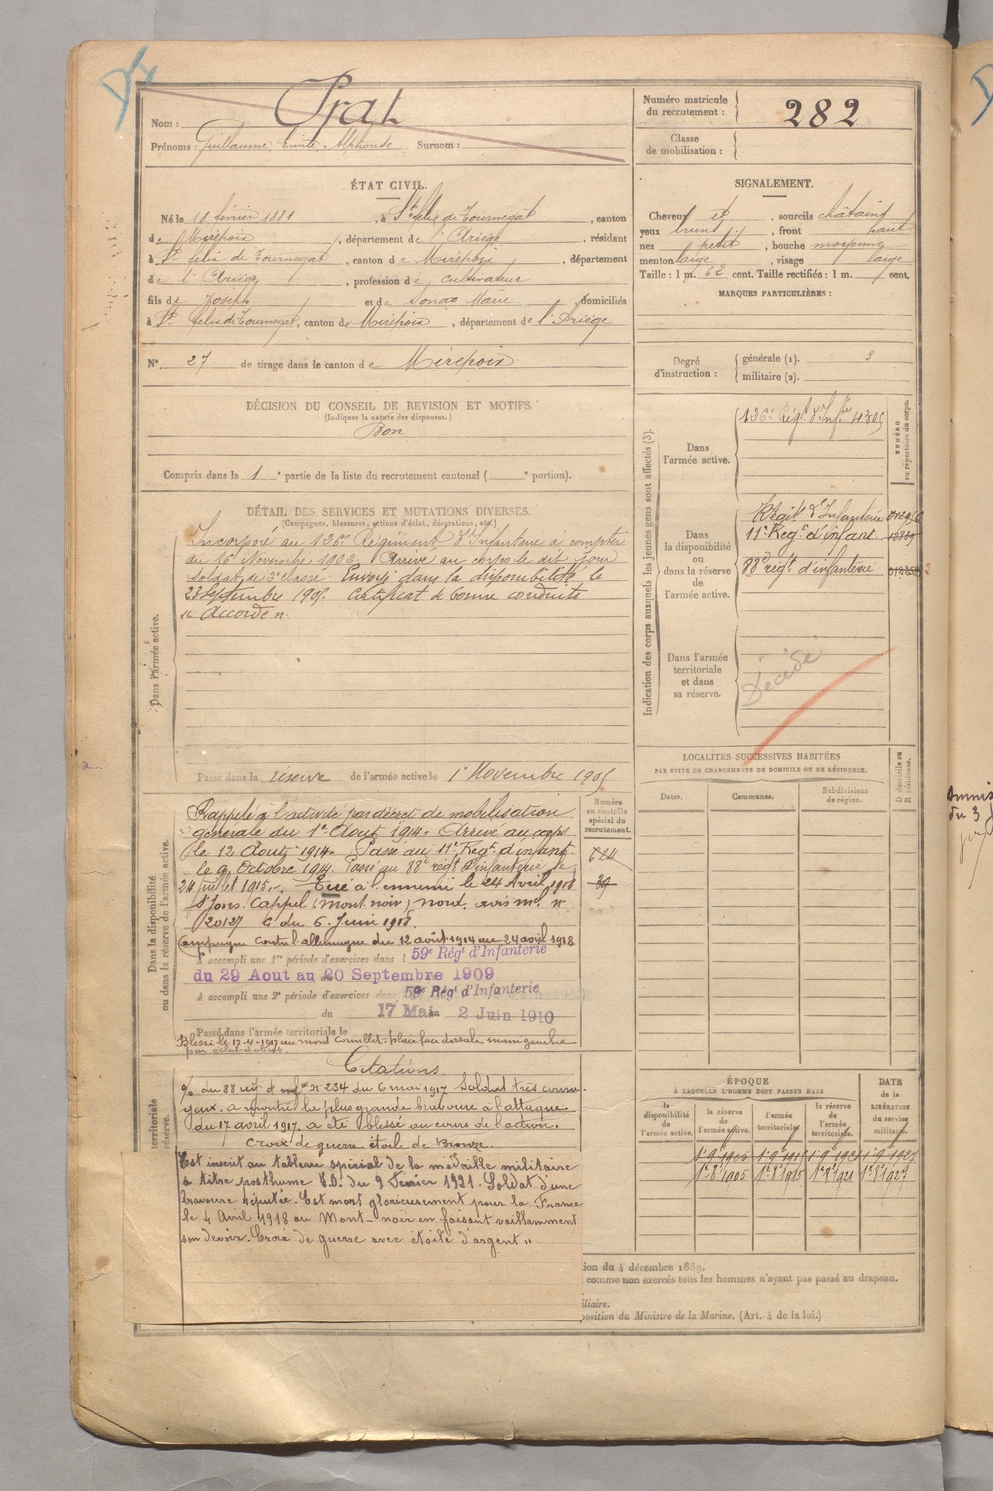 Nom : Prat
Prénoms : Guillaume, Emile, Alphonse Surnom :
Numéro matricule du recrutement : 282
Classe de mobilisation :
ÉTAT CIVIL.
Né le 10 février 1881, à St félix de Tournegat, canton
de Mirepoix, département de l'Ariège, résidant
à St félix de Tournegat, canton de Mirepoix, département
de l'Ariège, profession de cultivateur
fils de Joseph et de Marie domiciliés
à St felix de Tournegat, canton de Mirepoix, département de l'Ariège
N° 27 de tirage dans le canton de Mirepoix
SIGNALEMENT.
Cheveux et, sourcils châtains
yeux bruns, front haut
nez petit, bouche moyenne
menton large, visage large
Taille : 1 m. 62 cent. Taille rectifiée : 1 m. cent.
MARQUES PARTICULIÈRES :
Degré d'instruction : générale (1). 3
militaire (2).
DÉCISION DU CONSEIL DE REVISION ET MOTIFS.
(Indiquer la nature des dispenses.)
Bon
Compris dans la 1e partie de la liste du recrutement cantonal ( e portion).
DÉTAIL DES SERVICES ET MUTATIONS DIVERSES.
(Campagnes, blessures, actions d'éclat, décorations, etc.)
Dans l'armée active.
Incorporé au 126e Régiment d'Infanterie à compter
du 16 Novembre 1902. Arrivé au corps le dit jour
soldat de 2e classe. Envoyé dans la disponibilité le
Septembre 1905. Certificat de bonne conduite
"Accordé".
Passé dans la réserve de l'armée active le 1e Novembre 1905
Dans la disponibilité ou dans la réserve de l'armée active.
Rappelé à l'activité par décret de mobilisation
générale du 1er Août 1914. Arrivé au corps
le 12 Août 1914. Passé au 11e Régt d'infant.
le 9 Octobre 1914. Passé au 88e régt d'infanterie le
24 juillet 1915. Tué à l'ennemi le 24 Avril 1918
St Jans. Cappel (mont noir) nord. avis ml. n°
20127 du 6 Juin 1918.
Campagne contre l'allemagne du 12 août 1914 au 24 avril 1918
A accompli une 1re période d'exercices dans l 59e Régt d'Infanterie
du 29 Aout au 20 Septembre 1909
A accompli une 2e période d'exercices dans 59e Régt d'Infanterie
du 17 Mai au 2 Juin 1910
Passé dans l'armée territoriale le
Blessé le 17-4-1917 au mont Cornillet : plaie face dorsale main gauche
par éclat d'obus.
Citations
du 88 régt d'infie n° 234 du 6 mai 1917 Soldat très coura-
geux, a montré la plus grande bravoure à l'attaque
du 17 avril 1917. a été blessé au cours de l'action.
Croix de guerre étoile de Bronze.
Est inscrit au tableau spécial de la médaille militaire
à titre posthume J.O. du 9 Février 1921. Soldat d'une
bravoure réputée. Est mort glorieusement pour la France
le 4 Avril 1918 au Mont-noir en faisant vaillamment
son devoir. Croix de guerre avec étoile d'argent "
Numéro au contrôle spécial du recrutement.
624
39
Indication des corps auxquels les jeunes gens sont affectés (3).
NUMÉRO au répertoire du corps.
Dans l'armée active.
126e Régt d'Infie 4305
Dans la disponibilité ou dans la réserve de l'armée active.
Régit d'Infanterie
11e Regt d'infant
88e régt d'infanterie
Dans l'armée territoriale et dans sa réserve.
Décédé
LOCALITÉS SUCCESSIVES HABITÉES
PAR SUITE DE CHANGEMENTS DE DOMICILE OU DE RÉSIDENCE.
Dates. Communes. Subdivisions de région. D domicile ou R résidence.
ÉPOQUE
À LAQUELLE L'HOMME DOIT PASSER DANS
la disponibilité de l'armée active. la réserve de l'armée active. l'armée territoriale. la réserve de l'armée territoriale.
DATE de la LIBÉRATION du service militaire.
1-9-1905 1-9-1915 1-9-1921 1-9-1927
1-8-1905 1-8-1915 1-8-1921 1-8-1927
territoriale
réserve.
ion du 4 décembre 1889.
comme non exercés tous les hommes n'ayant pas passé au drapeau.
iliaire.
position du Ministre de la Marine. (Art. 4 de la loi.)
du 3